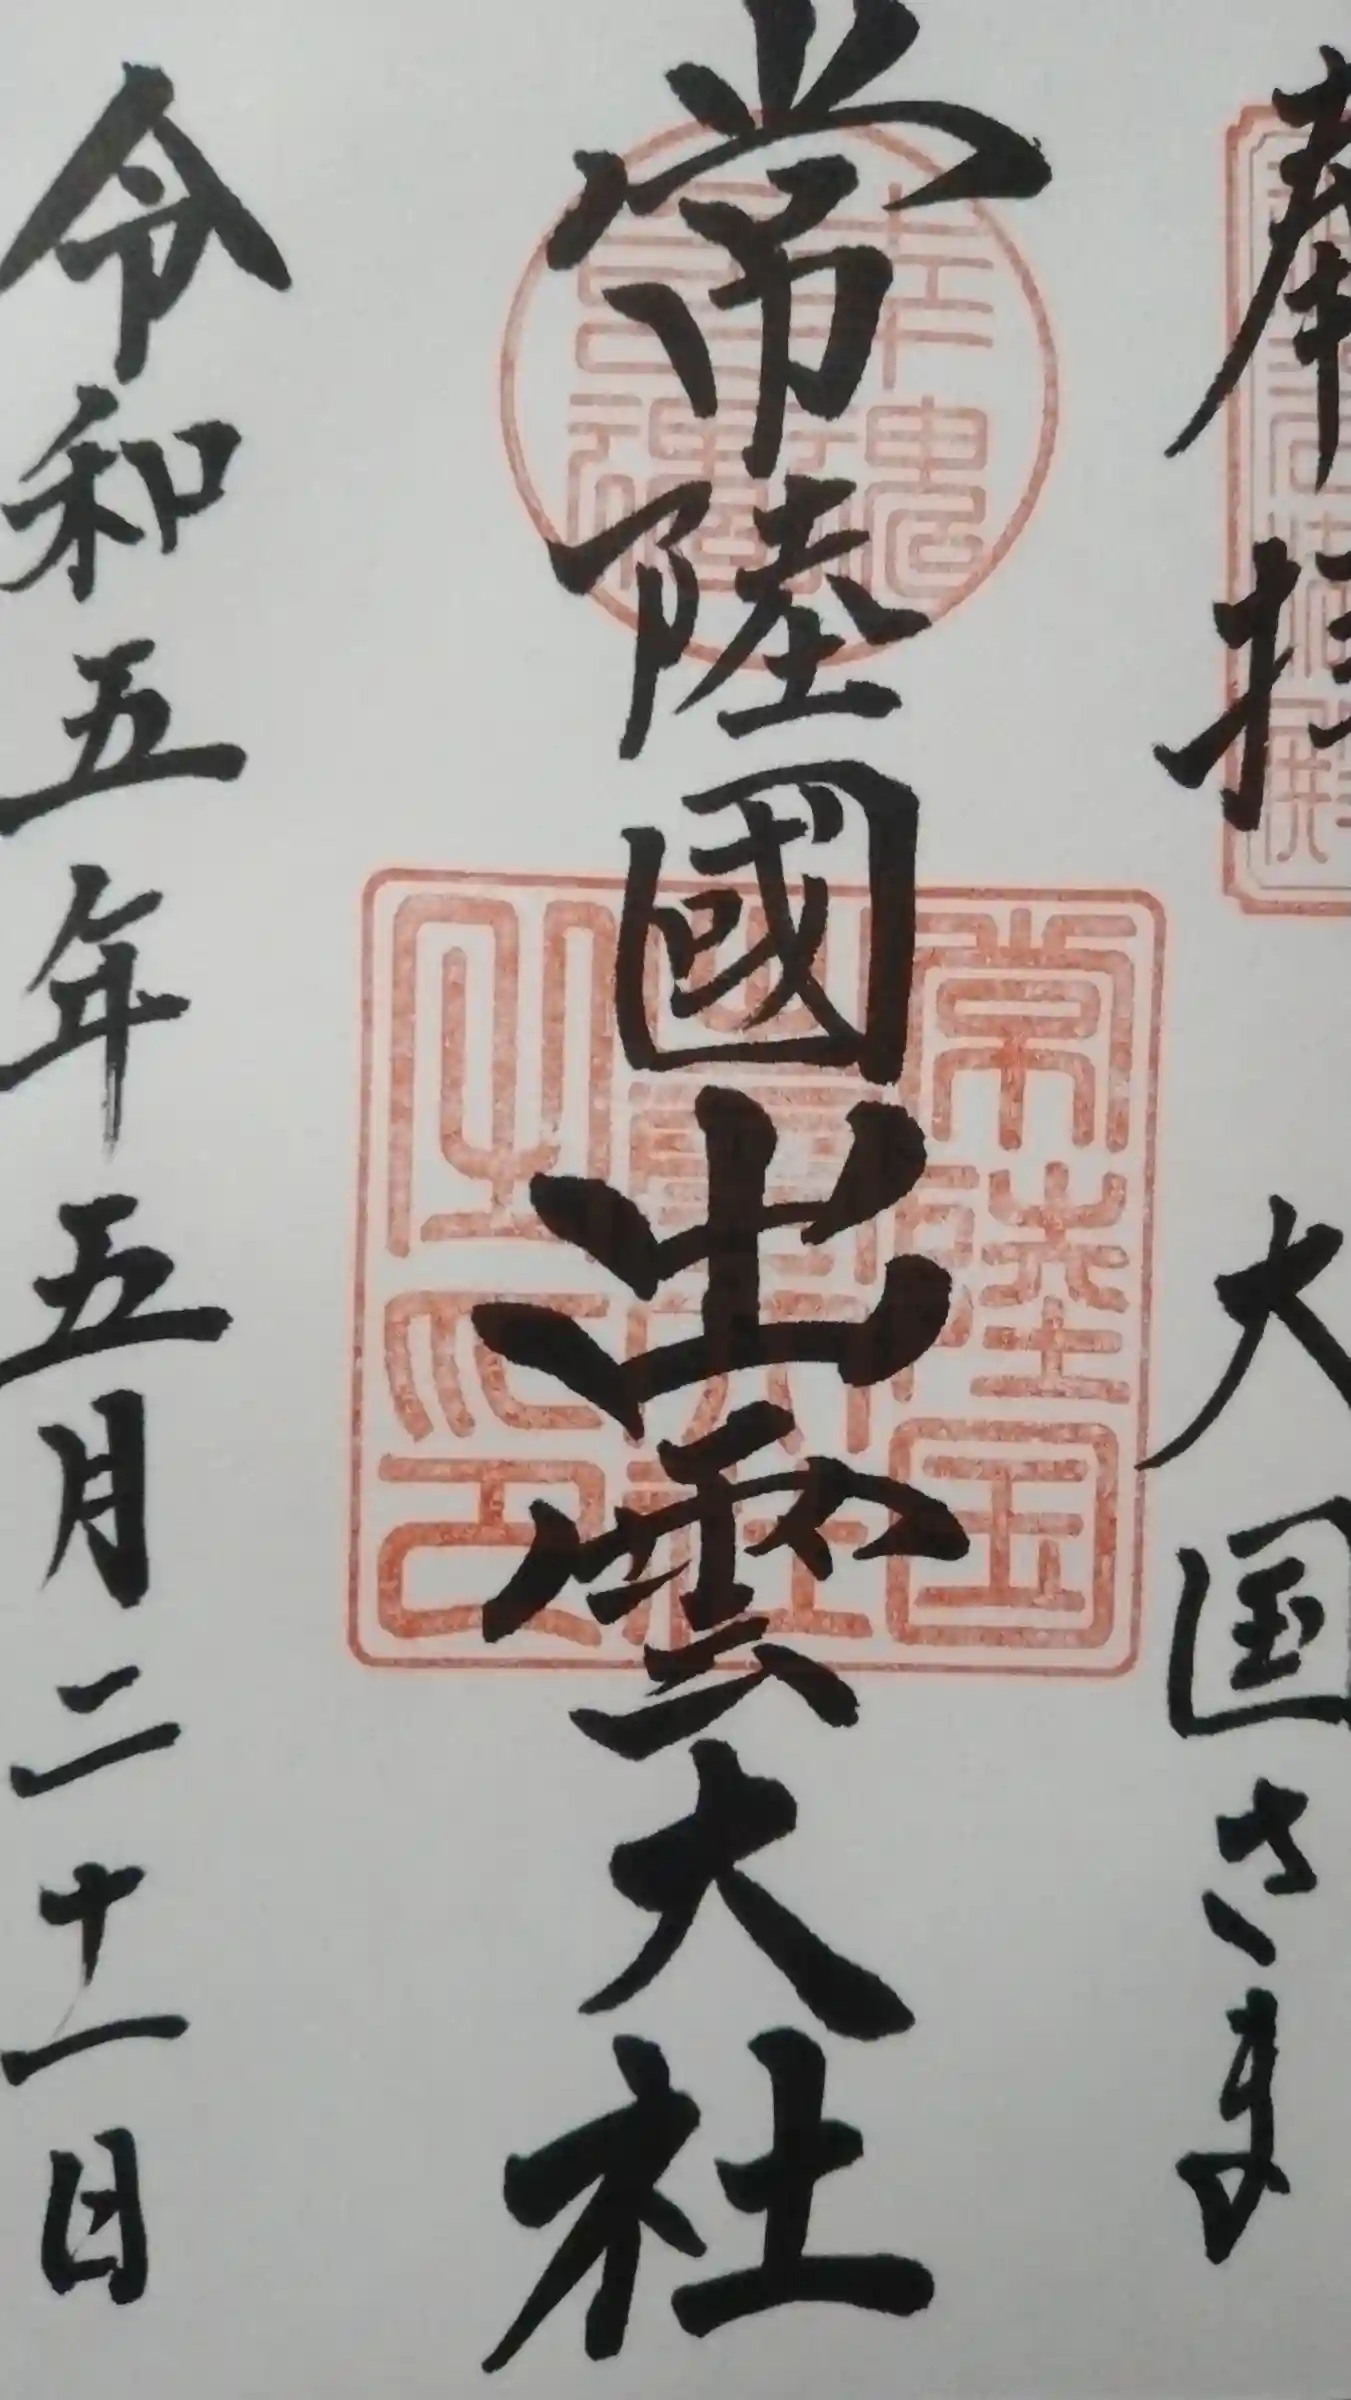 奉拝 大国さま
常陸國出雲大社
令和五年五月二十一日
常陸国
出雲大社
之印
幸魂